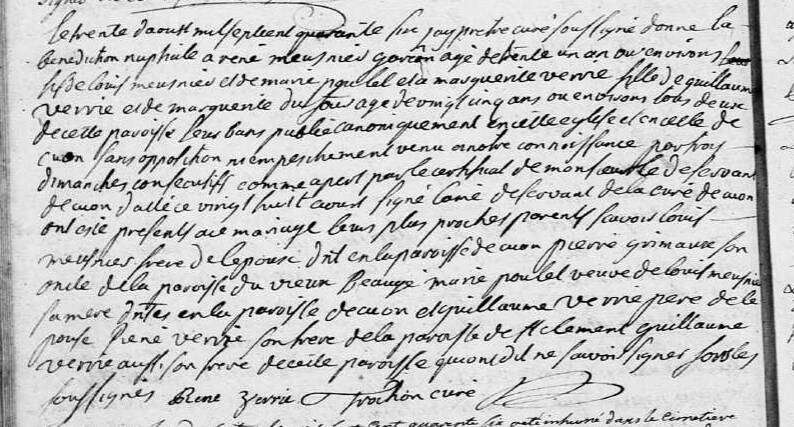 le trente d'aoust mil sept cent quarante six jay pretre curé soussigné donné la
benediction nuptiale a rené meusnier garcon agé de trente un an ou environs
fils de louis meusnier et de marie poullet et a marguerite verrié fille de guillaume
verrié et de marguerite du agé de vingt cinq ans ou environs tous deux
de cette paroisse leurs bans publié canoniquement en celle eglise et en celle de
cuon sans opposition ni empeschement venu a notre connoissance par trois
dimanches consecutifs comme apert par le certificat de monsieur le deservant
de cuon d'allé ce vingt huit aoust signé lamé deservant de la curé de cuon
ont esté presents a ce mariage leurs plus proches parents savoir louis
meusnier frere de lepouse dnt en la paroisse de cuon pierre grimaux son
oncle de la paroisse du vieux Beaugé marie poullet veuve de louis meusnier
sa mere dntes en la paroisse de cuon et guillaume verrié pere de le
pouse René verrié son frere de la paroisse de st clement guillaume
verrié aussi son frere de cette paroisse qui ont dit ne savoir signer fors les
soussignés René verrié trochon curé
quarante six a eté inhumé dans le cimetiere